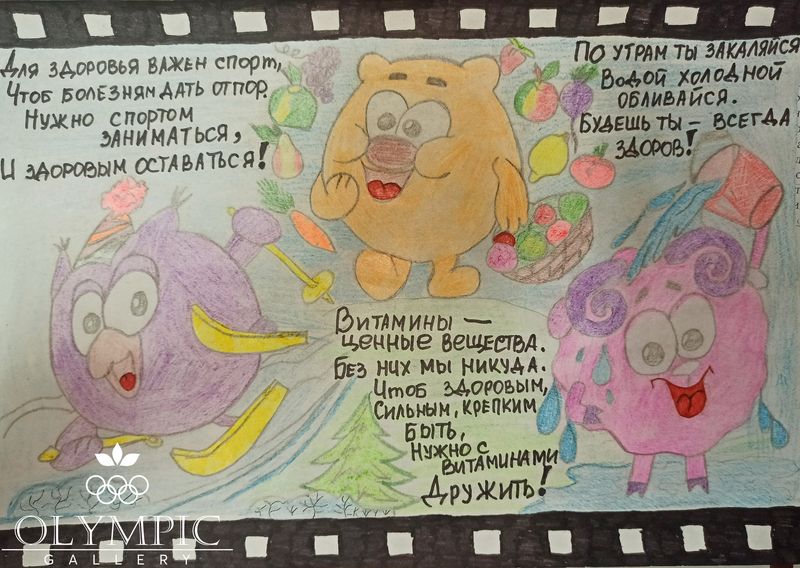 Для здоровья важен спорт,
Чтоб болезням дать отпор.
Нужно спортом
заниматься,
И здоровым оставаться!
По утрам ты закаляйся
Водой холодной
обливайся.
Будешь ты – всегда
здоров!
Витамины —
ценные вещества.
Без них мы никуда.
Чтоб здоровым,
сильным, крепким
быть,
Нужно с
витаминами
Дружить!
OLYMPIC
GALLERY